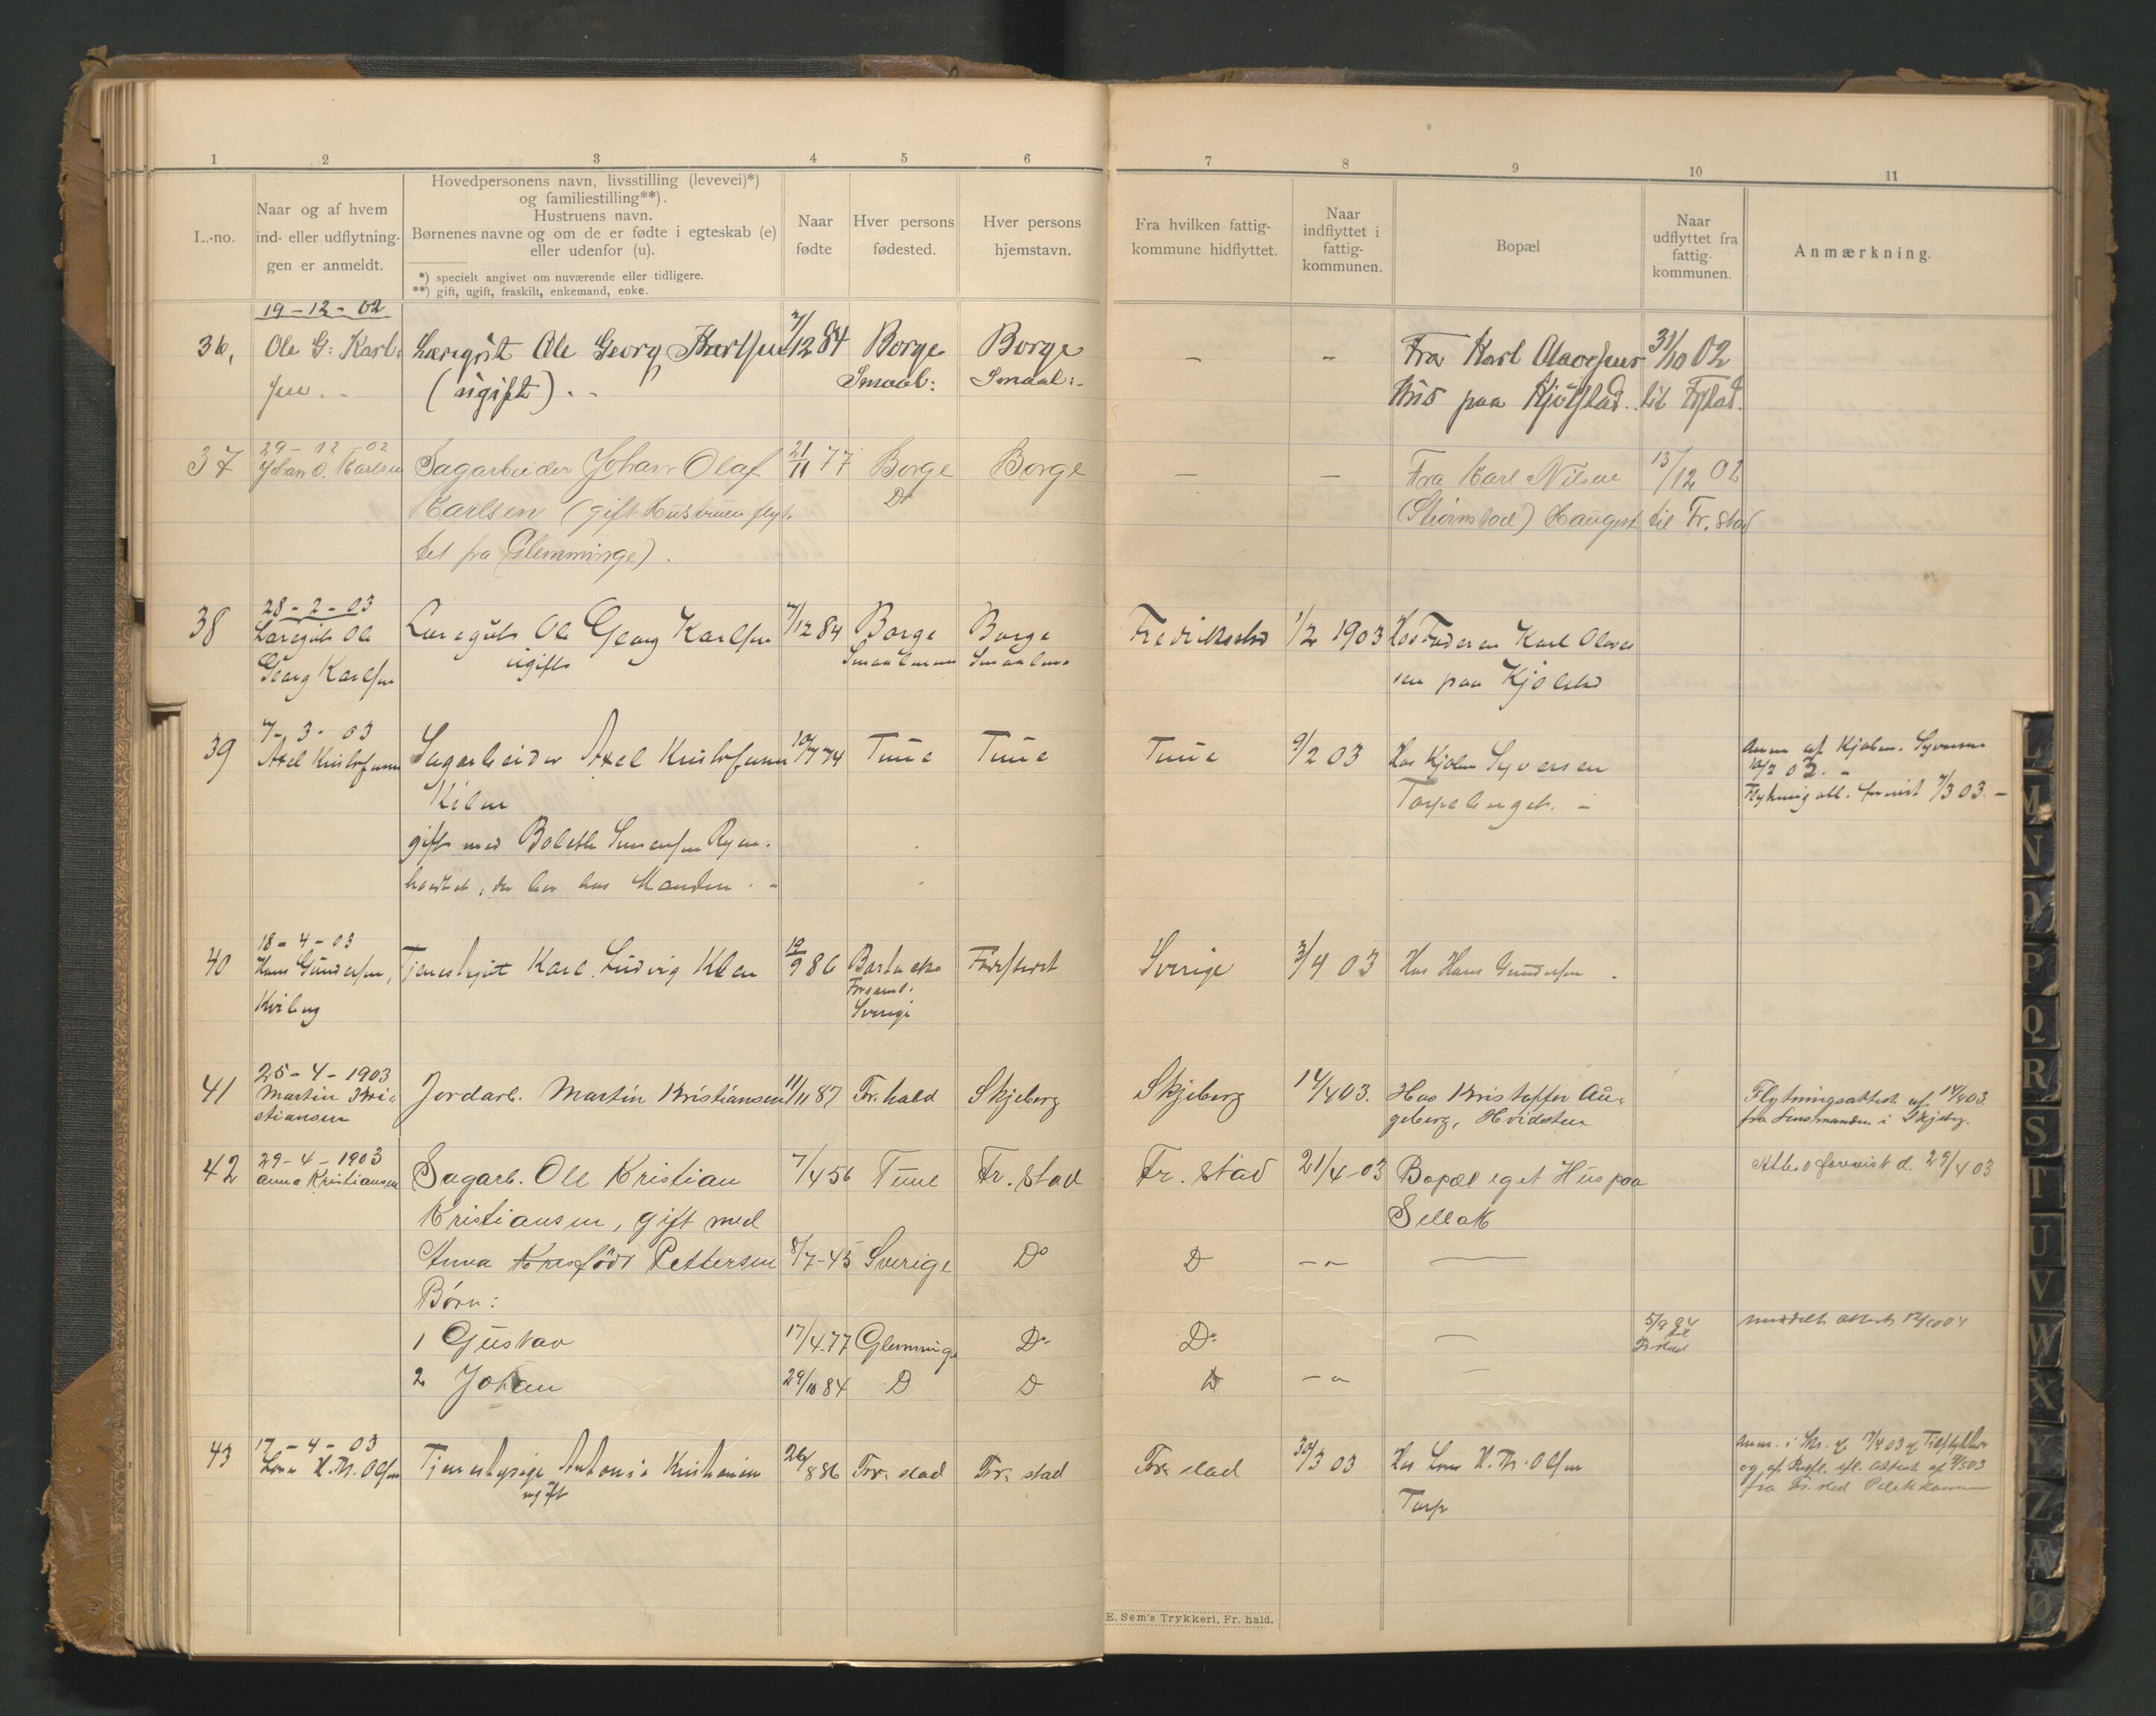 1 2 3 4 5 6 7 8 9 10 11
L.-no.
Naar og af hvem
ind- eller udflytnin-
gen er anmeldt.
Hovedpersonens navn, livsstilling (levevei)*)
og familiestilling**).
Hustruens navn.
Børnenes navne og om de er fødte i egteskab (e)
eller udenfor (u).
*) specielt angivet om nuværende eller tidligere.
**) gift, ugift, fraskilt, enkemand, enke.
Naar
fødte
Hver persons
fødested.
Hver persons
hjemstavn.
Fra hvilken fattig-
kommune hidflyttet.
Naar
indflyttet i
fattig-
kommunen.
Bopæl
Naar
udflyttet fra
fattig-
kommunen.
Anmærkning.
19-12-02
36, Ole G. Karl- Læregut Ole Georg Karlsen 7/12 84 Borge Borge – – Fra Karl Olavesens 31/10 02
sen (ugift) Smaal: Smaal: Hus paa Kjølstad. til Fr.stad.
29-12-02
37 Johan O. Karlsen Sagarbeider Johan Olaf 21/11 77 Borge Borge – – Fra Karl Nilsen 13/12 02
Karlsen (gift Hustruen flyt- Do til Fr. stad
tet fra Glemminge).
28-2-03
38 Læregut Ole Læregut Ole Georg Karlsen 7/12 84 Borge Borge Fredriksstad 1/2 1903 Hos Faderen Karl Olaves
Georg Karlsen ugift Smaalenene Smaalene sen paa Kjølstad
7-3-03
39 Axel Kristofersen Sagarbeider Axel Kristofersen Tune Tune Tune 9/2 03 Hos Kjølen Syversen Anm. af Kjølen Syversen
gift med Bolette Torpebergets. 10/2 03.
der bor hos Manden. Flytning att. forevist 7/3 03.
18-4-03
40 Hans Gundersen, Tjenestegut Karl Ludvig 19/9 86 Sverige 3/4 03 Hos Hans Gundersen
Sverige
25-4-1903
41 Martin Kri- Jordarb. Martin Kristiansen 11/11 87 Fr.hald Skjeberg Skjeberg 14/4 03. Hos Kristoffer Au- Flytningsattest af 14/4 03.
stiansen geberg, Hvidsten fra Lensmanden i Skjeberg.
29-4-1903
42 Anna Kristiansen Sagarb. Ole Kristian 7/4 56 Tune Fr. stad Fr. stad 21/4-03 Bopæl eget Hus paa Attest forevist d. 29/4 03
Kristiansen, gift med Sellak
Anna født Pettersen 8/7-45 Sverige Do D – –
Børn:
1 Gustav 17/4-77 Glemminge Do Do – 5/9 04 til Fr.stad meddelt attest
2 Johan 29/10 84 D D D – –
17-4-03
43 H. Th. Olsen Tjenestepige Antonie Kristiansen 26/8 86 Fr. stad Fr. stad Fr. stad 30/3 03 Hos H. Th. Olsen
ugift Torp
fra Fr. stad Politikammer
E. Sem's Trykkeri, Fr. hald.
L
M
N
O
P
Q
R
S
T
U
V
W
X
Y
Z
Æ
Ø